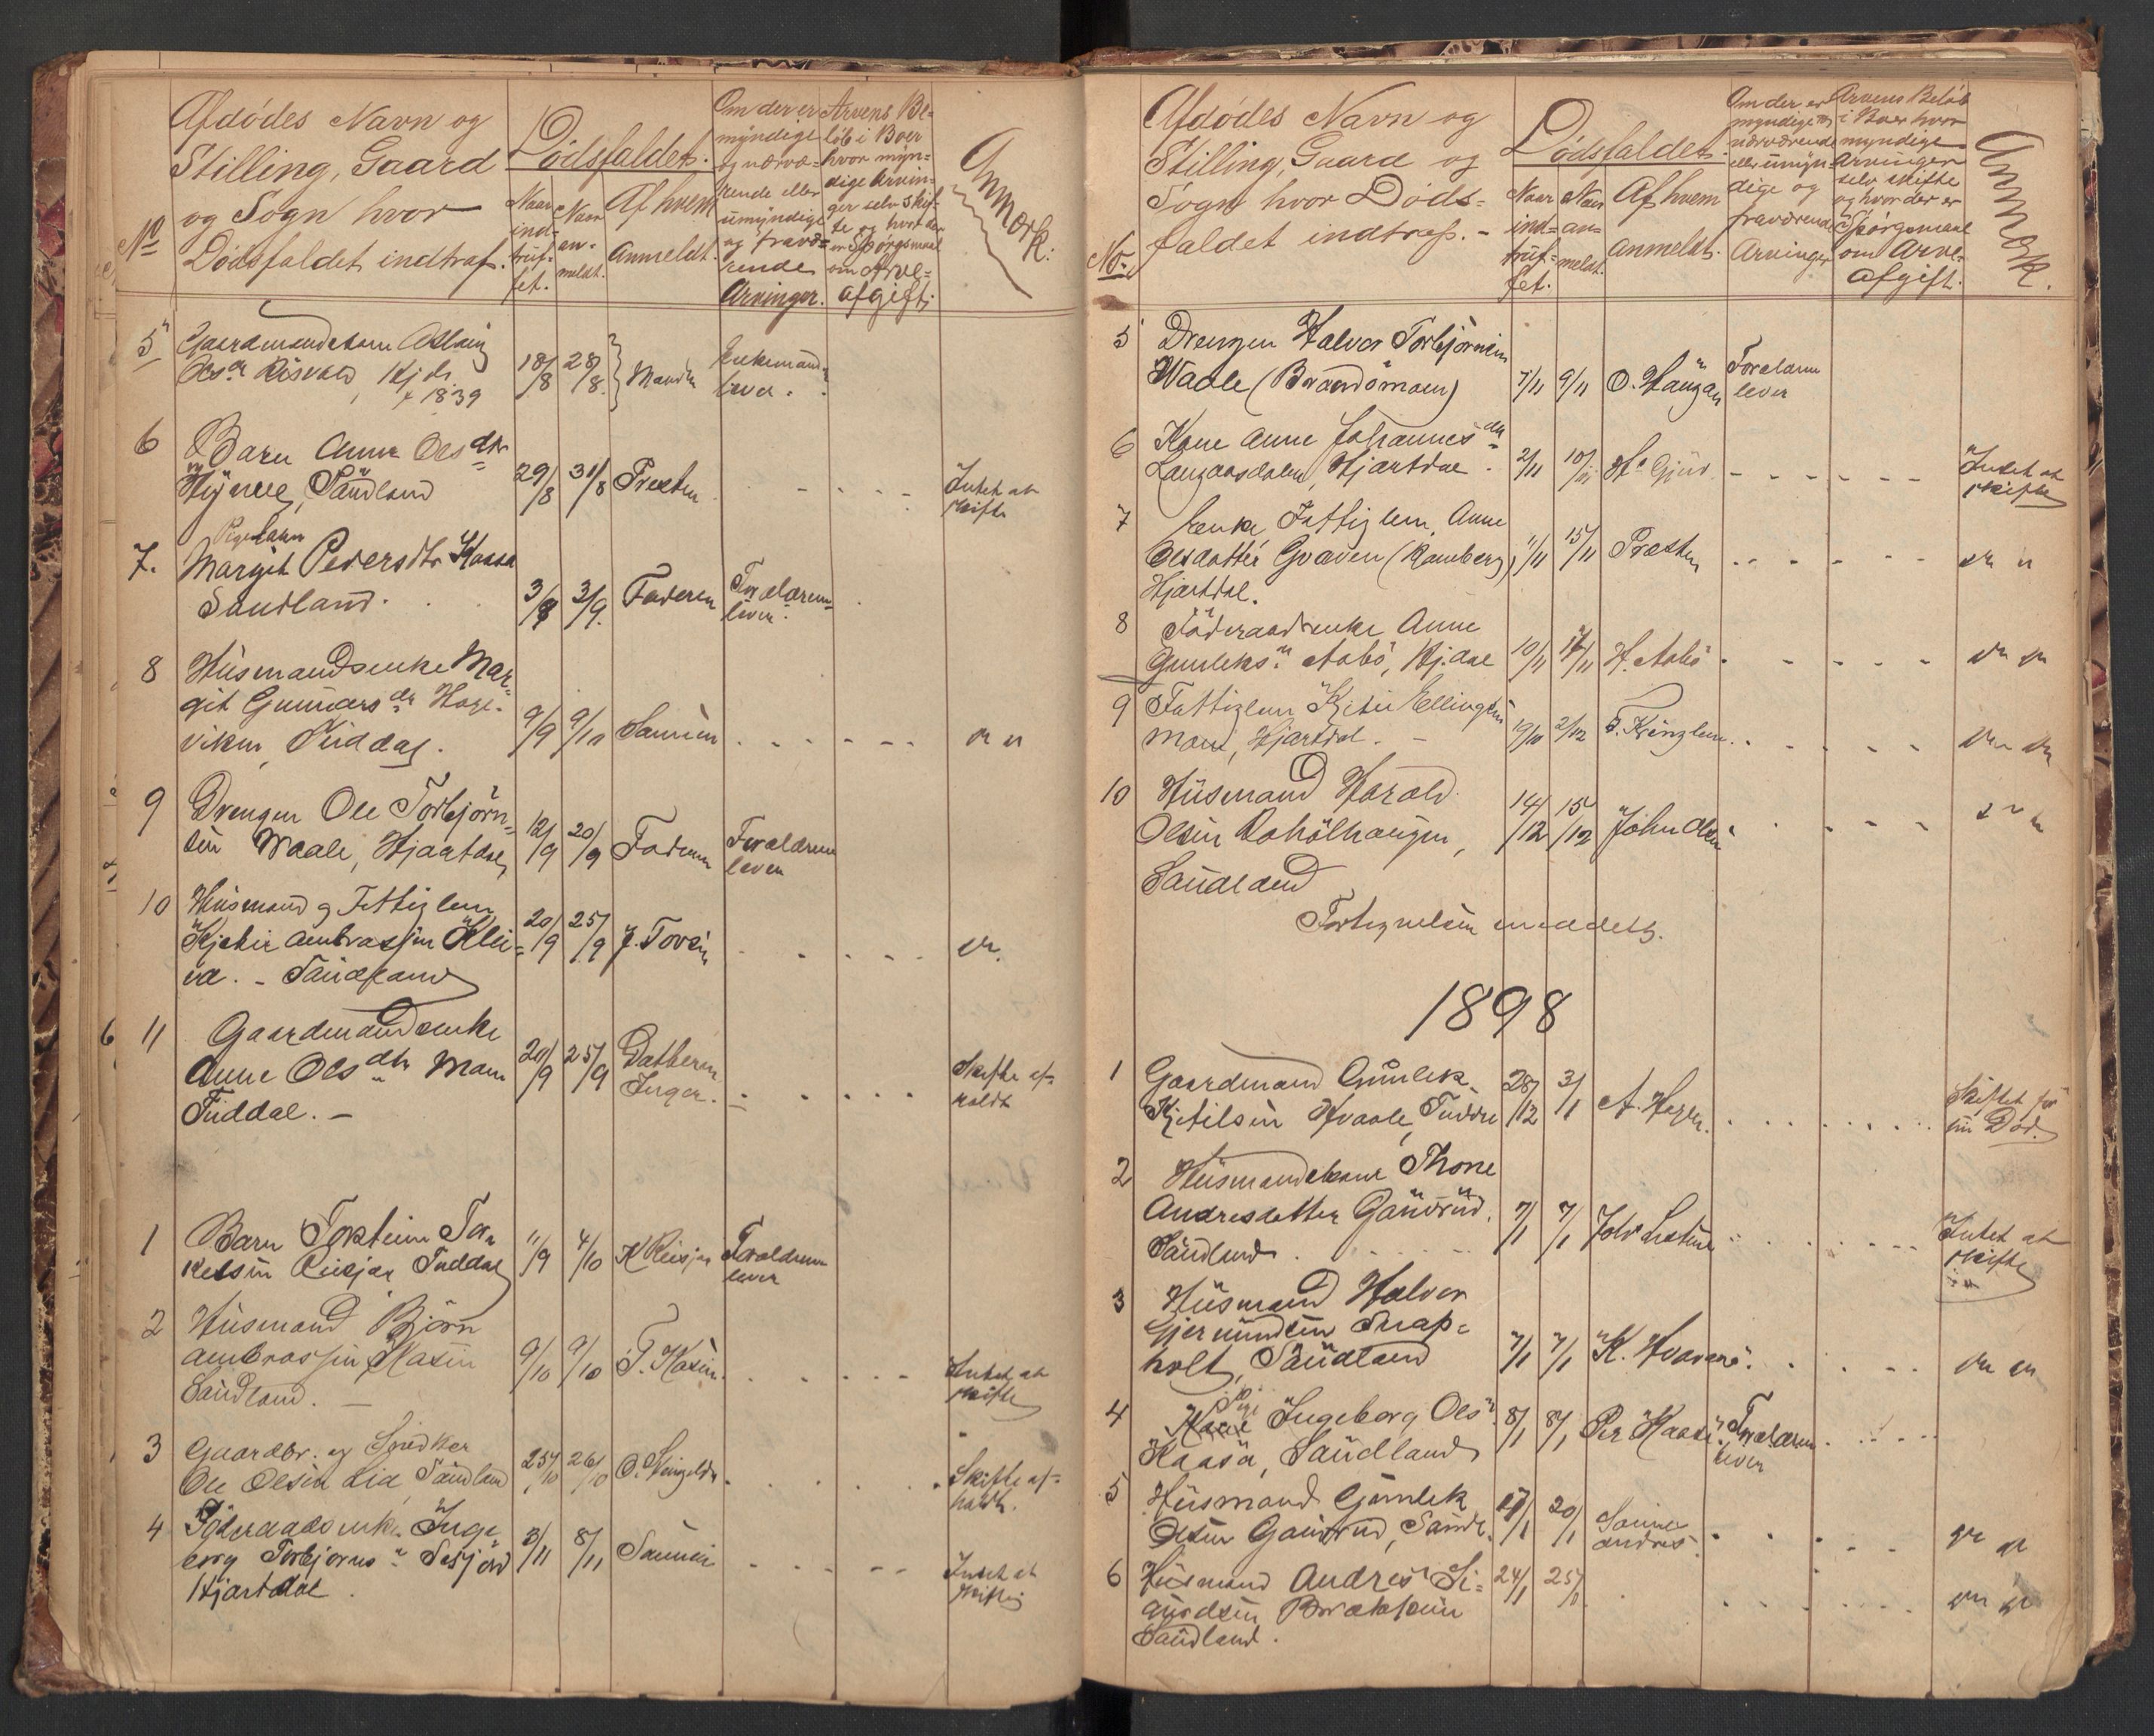 Afdödes Navn og
Stilling, Gaard
og Sogn hvor
Dödsfaldet indtraf.
No
Dödsfaldet.
Naar ind- truf- fet.
Naar an- meldt.
Af hvem anmeldt.
Om der er myndige og nærvæ- rende eller umyndige og fravæ- rende Arvinger.
Arvens Be- löb i Boer hvor myn- dige Arvin- ger selv skif- te og hvor der er Spörgsmaal om Arve- afgift.
Anmærk:
5 Gaardmandskone Aslaug
Olsdr Risvald, Hjdl. 18/8 28/8 Manden Enkemand lever.
f 1839
6 Barn Anne Olsdtr
Sändland 29/8 31/8 Præsten - - - - Intet at skifte
Pigebarn
7. Margit Pedersdtr Kaasa
Sandland. 3/9 3/9. Faderen Forældrene lever.
8 Husmandsenke Mar-
git Gunnarsdr Hage-
viken, Tuddal. 9/9 9/10 Sønnen - - - - - -
9 Drengen Ole Torbjörn-
sen Waale, Hjartdal, 12/9 20/9 Faderen Forældrene lever
10 Husmand og Fattiglem
Kjetil Ambrossen Klei-
va. - Saudland 20/9 25/9 J. Tovsen - - - -
6 11 Gaardmandsenke
Anne Olsdtr Moen
Tuddal. - 20/9 25/9 Datteren Inger. - - - - Skifte af- holdt
1 Barn Torstein Tor-
kelsen Reisjaa Tuddal 11/9 4/10 K Reisjaa Forældrene lever
2 Husmand Björn
Ambrossen Kaasen
Saudland. 9/10 9/10 T. Kaasen. - - - - Intet at skifte
3 Gaardbr. og Snedker
Ole Olsen Lia, Saudland 25/10 26/10 O. - - - - Skifte af- holdt.
4 Föderaadsenke Inge-
borg Torbjörns Sesjord
Hjartdal. 3/11 8/11 Sønnen - - - - Intet at skifte
Afdödes Navn og
Stilling, Gaard og
Sogn hvor Döds-
faldet indtraf. -
No.
Dödsfaldet.
Naar ind- truf- fet.
Naar an- meldt.
Af hvem anmeldt.
Om der er myndige og nærværende eller umyn- dige og fraværende Arvinger
Arvens Belöb i Boer hvor myndige Arvinger selv skifte og hvor der er Spörgsmaal om Arve- afgift.
Anmærk.
5 Drengen Halvor Torbjörnsen
Waale (Brandsmoen) 7/11 9/11 O. Haugan Forældrene lever
6 Kone Anne Johannesdr
Langaasdalen, Hjartdal. 2/11 10/11 Hr Gjuv. - - - - - - Intet at skifte
7 Enke Fattiglem, Anne
Olsdatter Graven (Ramberg)
Hjartdal. 1/11 15/11 Præsten - - - - -
8 Föderaadsenke Anne
Gunleks Aabö, Hj.dal 10/11 17/11 H. Aabö - - - - -
9 Fattiglem Kjetil Ellingsen
Moen, Hjartdal. - 19/10 2/12 - - - -
10 Husmand Harald
Olsen Roholthaugen,
Saudland 14/12 15/12 John Olsen - - - -
Fortegnelsen meddelt.
1898
1 Gaardmand Gunlek
Kjetilsen Hvaale, Tuddal 28/12 3/1 A. - - - - - Skiftet för sin Död.
2 Husmandskone Thone
Andresdatter Gausrud,
Saudland. 7/1 7/1 - - - - Intet at skifte
3 Husmand Halvor
Gjermundsen Skrap-
holt, Saudland 7/1 7/1 K. - - - -
Pige
4 Kone Ingeborg Ols
Kaasa, Saudland 8/1 8/1 Per Kaasa. Forældrene lever - - - -
5 Husmand Gunlek
Olsen Gausrud, Saudl. 17/1 20/1 Sønnen Andres. - - - -
6 Husmand Andres Si-
gurdsen
Saudland. 24/1 25/1 - - - -